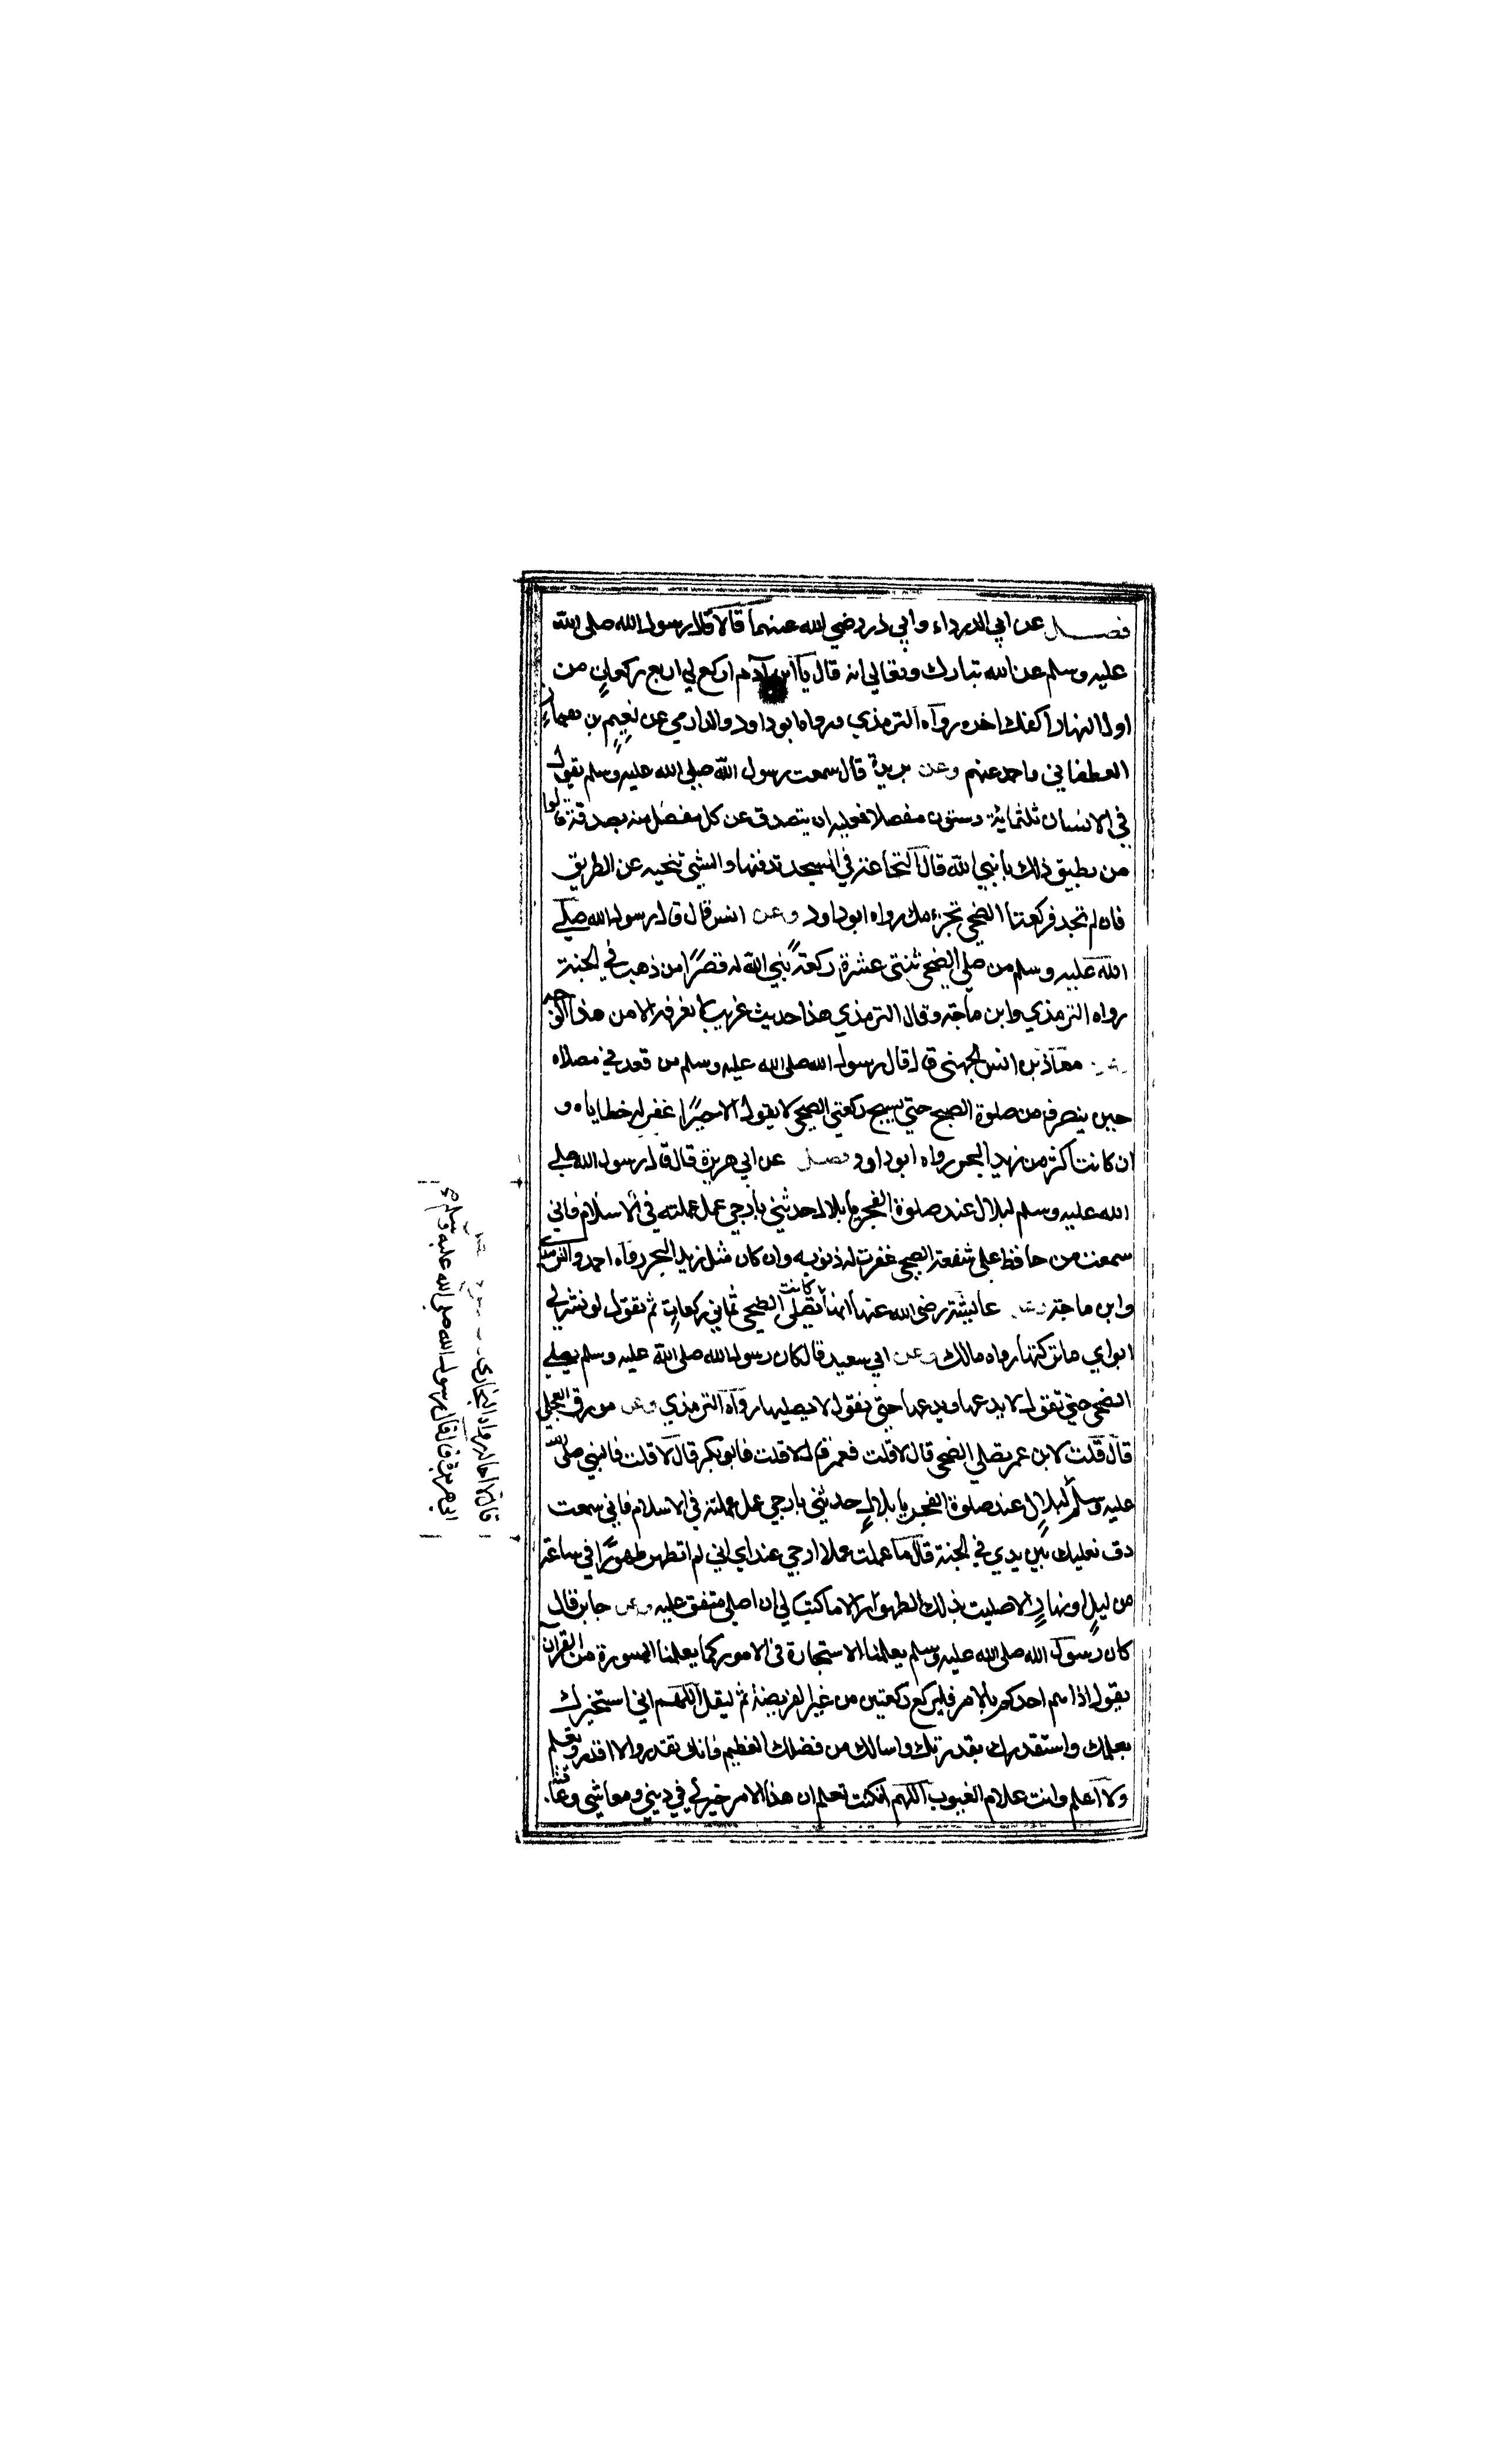 فصل عن ابي الدرداء وابي ذر رضي الله عنهما قالا قال رسول الله صلى الله
عليه وسلم عن الله تبارك وتعالى انه قال يا ابن آدم اركع لي اربع ركعات من
اول النهار اكفك اخره رواه الترمذي ورواه ابو داود والدارمي عن نعيم بن همار
الغطفاني واحمد عنهم وعن بريدة قال سمعت رسول الله صلى الله عليه وسلم يقول
في الانسان ثلثمائة وستون مفصلا فعليه ان يتصدق عن كل مفصل منه بصدقة قالوا
من يطيق ذلك يا نبي الله قال النخاعة في المسجد تدفنها والشئ تنحيه عن الطريق
فان لم تجد فركعتا الضحى تجزءك رواه ابو داود وعن انس قال قال رسول الله صلى
الله عليه وسلم من صلى الضحى ثنتي عشرة ركعة بنى الله له قصرًا من ذهب في الجنة
رواه الترمذي وابن ماجة وقال الترمذي هذا حديث غريب لا نعرفه الا من هذا الوجه
معاذ بن انس الجهني قال قال رسول الله صلى الله عليه وسلم من قعد في مصلاه
حين ينصرف من صلوة الصبح حتى يسبح ركعتي الضحى لا يقول الا خيرًا غفر له خطاياه و
ان كانت اكثر من زبد البحر رواه ابو داود فصل عن ابي هريرة قال قال رسول الله صلى
الله عليه وسلم لبلال عند صلوة الفجر يا بلال حدثني بارجى عمل عملته في الاسلام فاني
سمعت من حافظ على شفعة الضحى غفرت له ذنوبه وان كان مثل زبد البحر رواه احمد والترمذي
وابن ماجة وعن عائشة رضي الله عنها انها كانت تصلي الضحى ثماني ركعات ثم تقول لو نشر لي
ابواي ما تركتها رواه مالك وعن ابي سعيد قال كان رسول الله صلى الله عليه وسلم يصلي
الضحى حتى نقول لا يدعها ويدعها حتى نقول لا يصليها رواه الترمذي وعن مورق العجلي
قال قلت لابن عمر تصلي الضحى قال لا قلت فعمر قال لا قلت فابو بكر قال لا قلت فالنبي صلى الله
عليه وسلم لبلال عند صلوة الفجر يا بلال حدثني بارجى عمل عملته في الاسلام فاني سمعت
دف نعليك بين يدي في الجنة قال ما عملت عملا ارجى عندي اني لم اتطهر طهورًا في ساعة
من ليل او نهار الا صليت بذلك الطهور الا ما كتب لي ان اصلي متفق عليه وعن جابر قال
كان رسول الله صلى الله عليه وسلم يعلمنا الاستخارة في الامور كما يعلمنا السورة من القرآن
يقول اذا هم احدكم بالامر فليركع ركعتين من غير الفريضة ثم ليقل اللهم اني استخيرك
بعلمك واستقدرك بقدرتك واسالك من فضلك العظيم فانك تقدر ولا اقدر وتعلم
ولا اعلم وانت علام الغيوب اللهم ان كنت تعلم ان هذا الامر خير لي في ديني ومعاشي وعا
قال لا اخاله رواه البخاري
ابي هريرة قال قال رسول الله صلى الله عليه وسلم